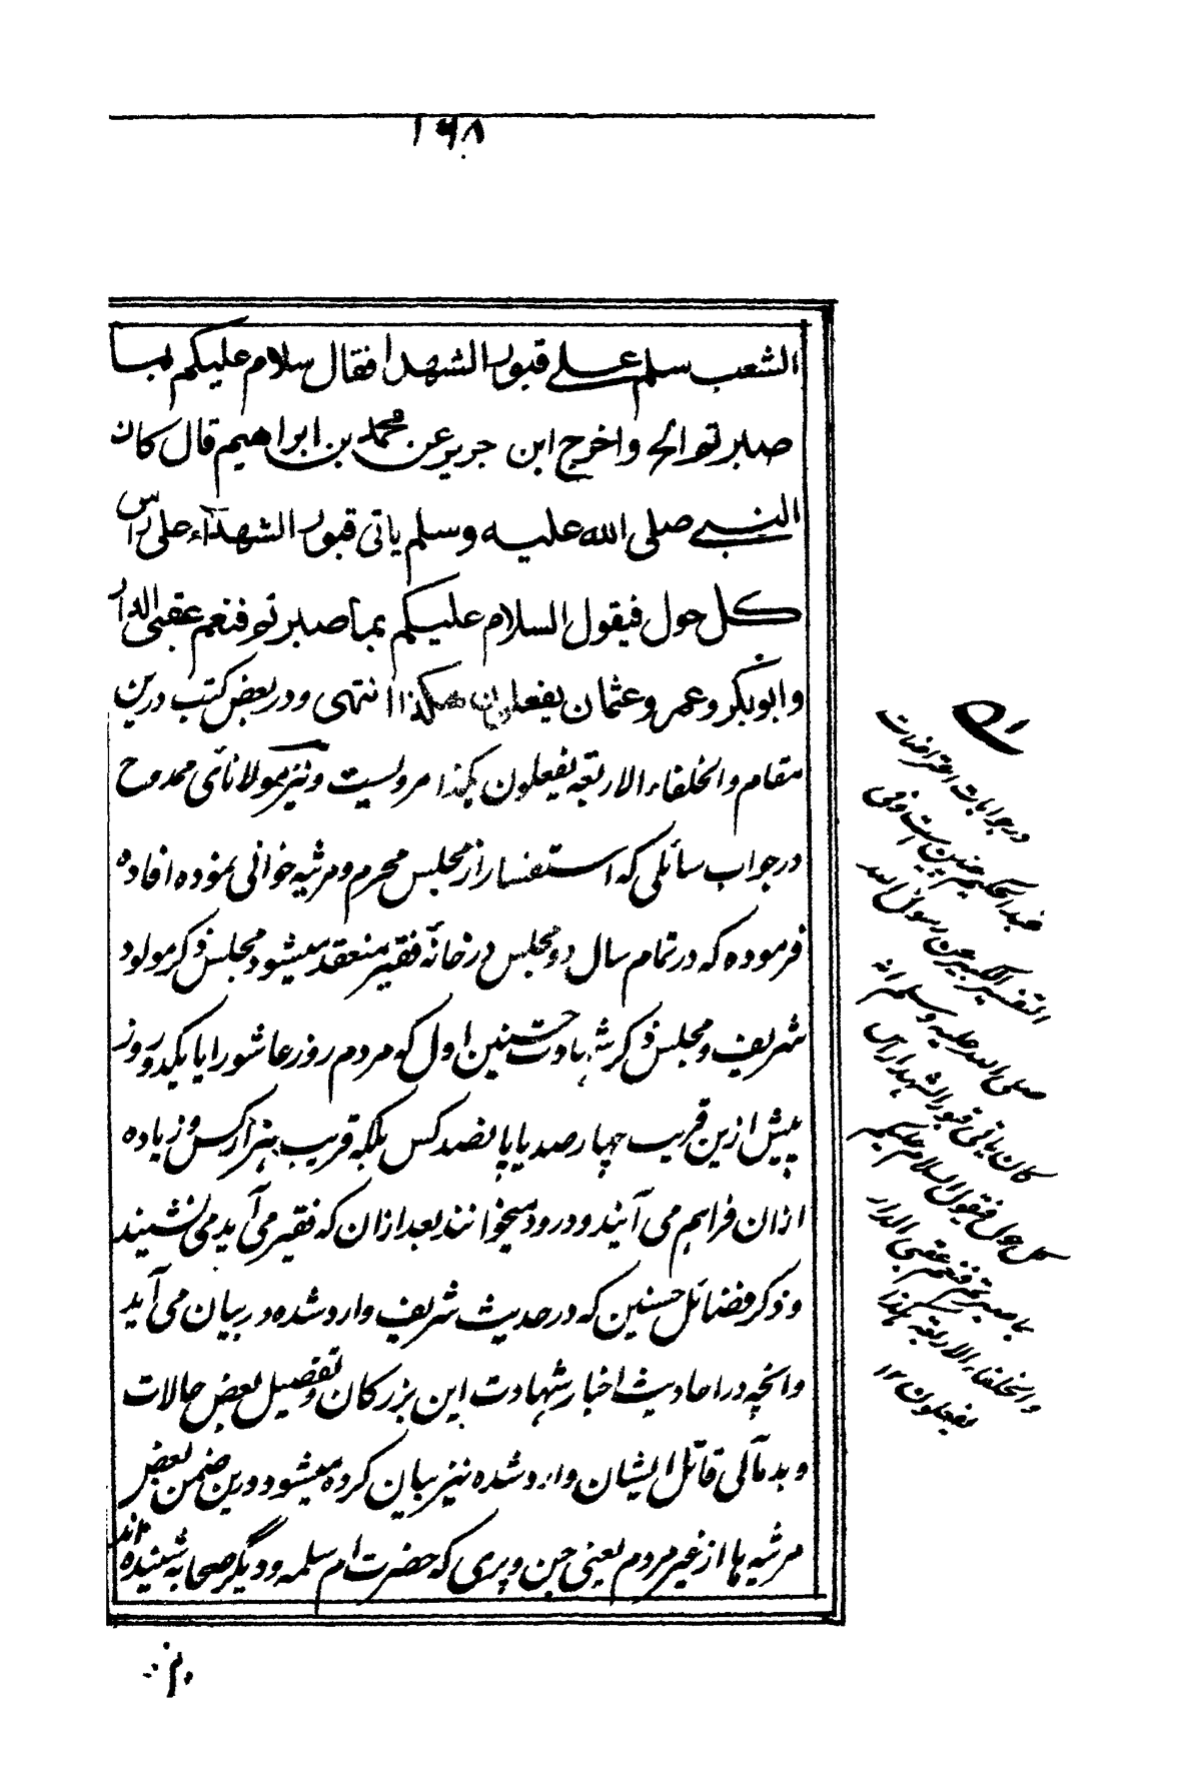 ۱۶۸
الشعب سلم علے قبور الشهدا فقال سلام علیکم بما
صبرتم الخ واخرج ابن جریر عن محمد بن ابراهیم قال کان
النبے صلی الله علیه وسلم یاتی قبور الشهداء علی راس
کل حول فیقول السلام علیکم بما صبرتم فنعم عقبی الدار
وابوبکر وعمر وعثمان یفعلون هکذا انتهی ودر بعض کتب درین
مقام والخلفاء الاربعه یفعلون هکذا مرویست ونیز مولانائی ممدوح
در جواب سائلی که استفسار از مجلس محرم ومرثیه خوانی نموده افاده
فرموده که در تمام سال دو مجلس در خانهٔ فقیر منعقد میشود مجلس ذکر مولود
شریف ومجلس ذکر شهادت حسنین اول که مردم روز عاشورا یا یکدو روز
پیش ازین قریب چهار صد یا پانصد کس بلکه قریب هزار کس وزیاده
ازان فراهم می آیند ودرود میخوانند بعد ازان که فقیر می آید می نشیند
وذکر فضائل حسنین که در حدیث شریف وارد شده در بیان می آید
وانچه در احادیث اخبار شهادت این بزرگان وتفصیل بعض حالات
وبد مآلی قاتل ایشان وارد شده نیز بیان کرده میشود ودرین ضمن بعض
مرثیه ها از غیر مردم یعنی جن وپری که حضرت ام سلمه ودیگر صحابه شنیده اند
در جوابات اعتراضات
عبدالحکیم چنین است وفی
التفسیر الکبیر عن رسول الله
صلی الله علیه وسلم انه
کان یاتی قبور الشهدا راس
کل حول فیقول السلام علیکم
بما صبرتم فنعم عقبی الدار
والخلفاء الاربعة هکذا
یفعلون ۱۲